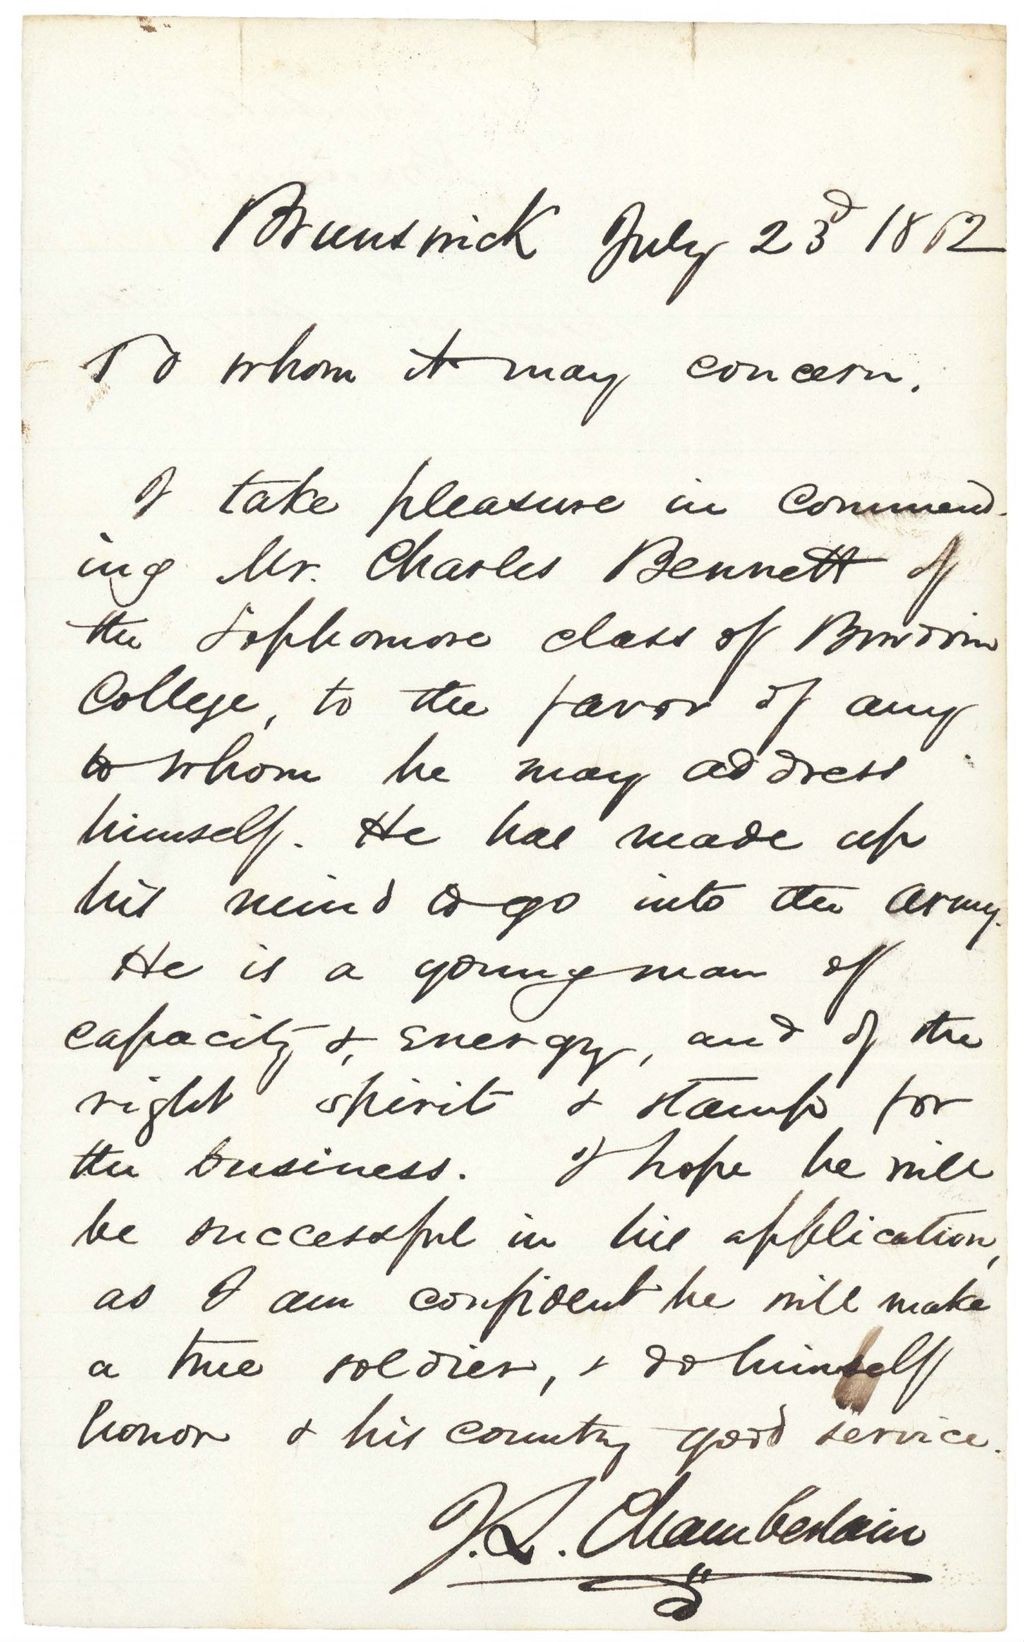 Brunswick July 23d 1862
To whom it may concern.
I take pleasure in commend-
ing Mr. Charles Bennett of
the Sophomore class of Bowdoin
College, to the favor of any
to whom he may address
himself. He has made up
his mind to go into the army.
He is a young man of
capacity & energy, and of the
right spirit & stamp for
the business. I hope he will
be successful in his application,
as I am confident he will make
a true soldier, & do himself
honor & his country good service.
J. L. Chamberlain